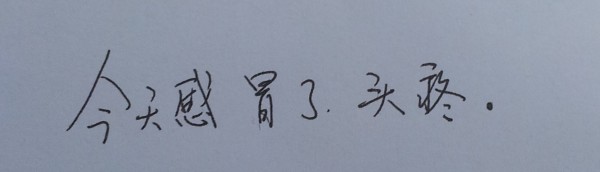 今天感冒了.头疼.